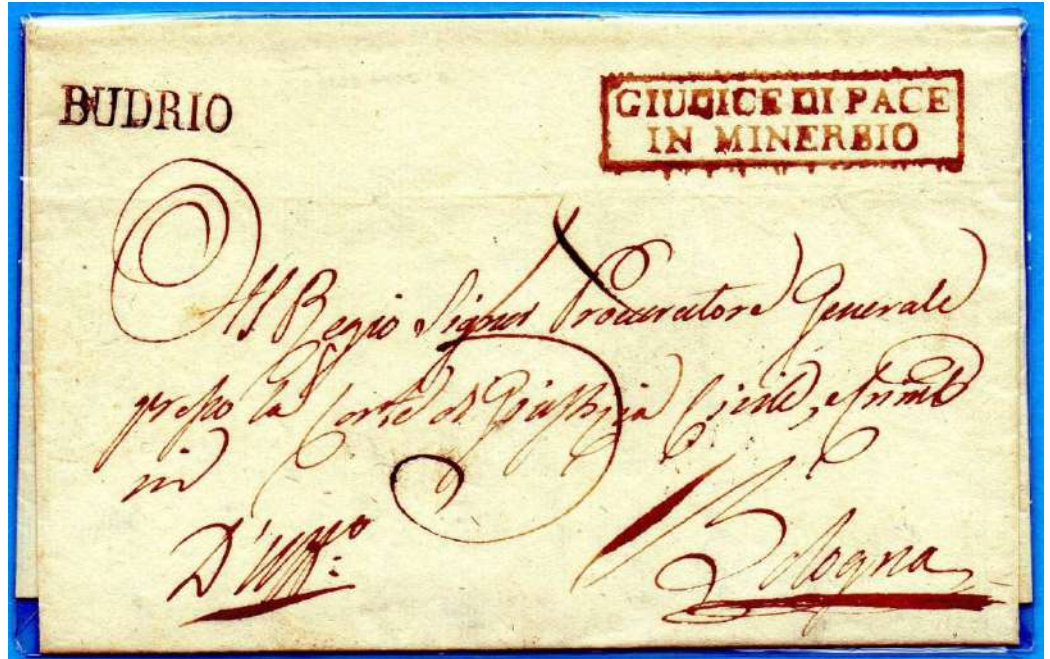 BUDRIO
GIUDICE DI PACE
IN MINERBIO
Al Regio Signor Procuratore Generale
presso la Corte di Giustizia Civile, e Crimle
in
D'uffo:
Bologna